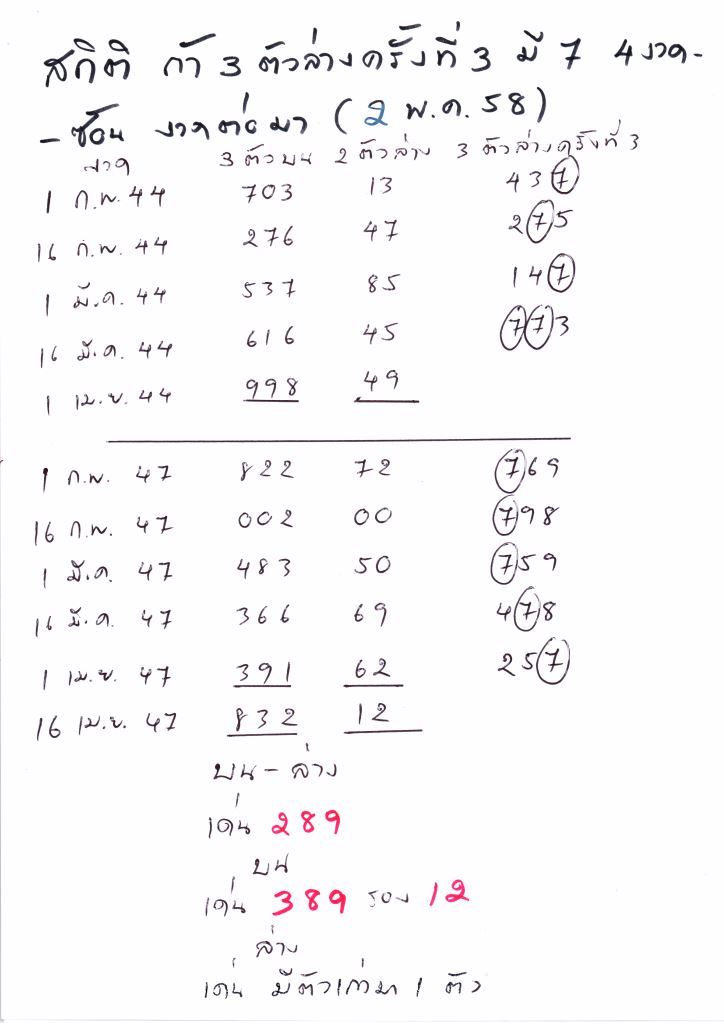 สถิติ ถ้า 3 ตัวล่างครั้งที่ 3 มี 7 4 งวด -
- ซ้อน งวดต่อมา (2 พ.ค. 58)
งวด 3 ตัวบน 2 ตัวล่าง 3 ตัวล่างครั้งที่ 3
1 ก.พ. 44 703 13 437
16 ก.พ. 44 276 47 275
1 มี.ค. 44 537 85 147
16 มี.ค. 44 616 45 773
1 เม.ย. 44 998 49
1 ก.พ. 47 822 72 769
16 ก.พ. 47 002 00 798
1 มี.ค. 47 483 50 759
16 มี.ค. 47 366 69 478
1 เม.ย. 47 391 62 257
16 เม.ย. 47 832 12
บน - ล่าง
เด่น 289
บน
เด่น 389 รอง 12
ล่าง
เด่น มีตัวเก่ามา 1 ตัว